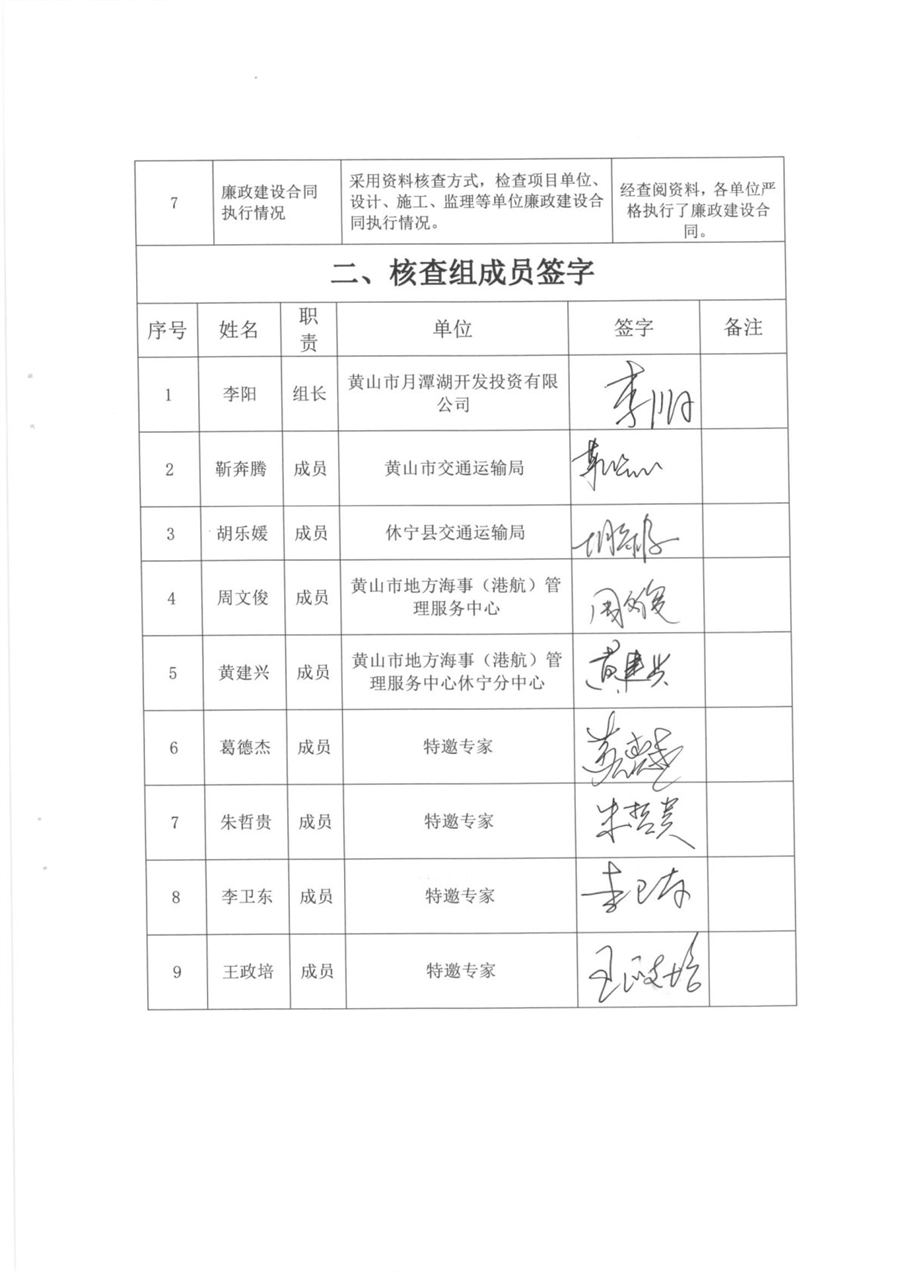 7
廉政建设合同
执行情况
采用资料核查方式，检查项目单位、
设计、施工、监理等单位廉政建设合
同执行情况。
经查阅资料，各单位严
格执行了廉政建设合
同。
二、核查组成员签字
序号 姓名 职责 单位 签字 备注
1 李阳 组长 黄山市月潭湖开发投资有限
公司
李阳
2 靳奔腾 成员 黄山市交通运输局
3 胡乐媛 成员 休宁县交通运输局
4 周文俊 成员 黄山市地方海事（港航）管
理服务中心
周文俊
5 黄建兴 成员 黄山市地方海事（港航）管
理服务中心休宁分中心
黄建兴
6 葛德杰 成员 特邀专家
7 朱哲贵 成员 特邀专家 朱哲贵
8 李卫东 成员 特邀专家 李卫东
9 王政培 成员 特邀专家 王政培